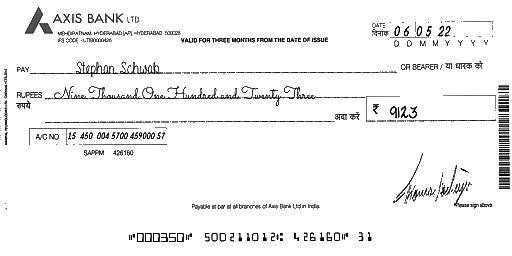 AXIS BANK LTD
MEHDIPATNAM, HYDERABAD (AP) HYDERABAD 500028
IFS CODE - UTIB0000426
VALID FOR THREE MONTHS FROM THE DATE OF ISSUE
DATE
दिनांक 06 05 22
D D M M Y Y Y Y
PAY Stephan Schwab OR BEARER / या धारक को
RUPEES Nine Thousand One Hundred and Twenty Three
रुपये अदा करें ₹ 9123
A/C NO 15 450 004 5700 459000 57
SAPPM 426160
Payable at par at all branches of Axis Bank Ltd in India.
Please sign above
"000350" 500211012: 426160" 31